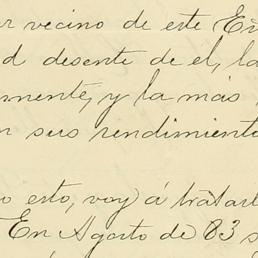 vecino de este
desente de el, la
mente, y la más
sus rendimiento
esto, voy á tratar
En Agosto de 83